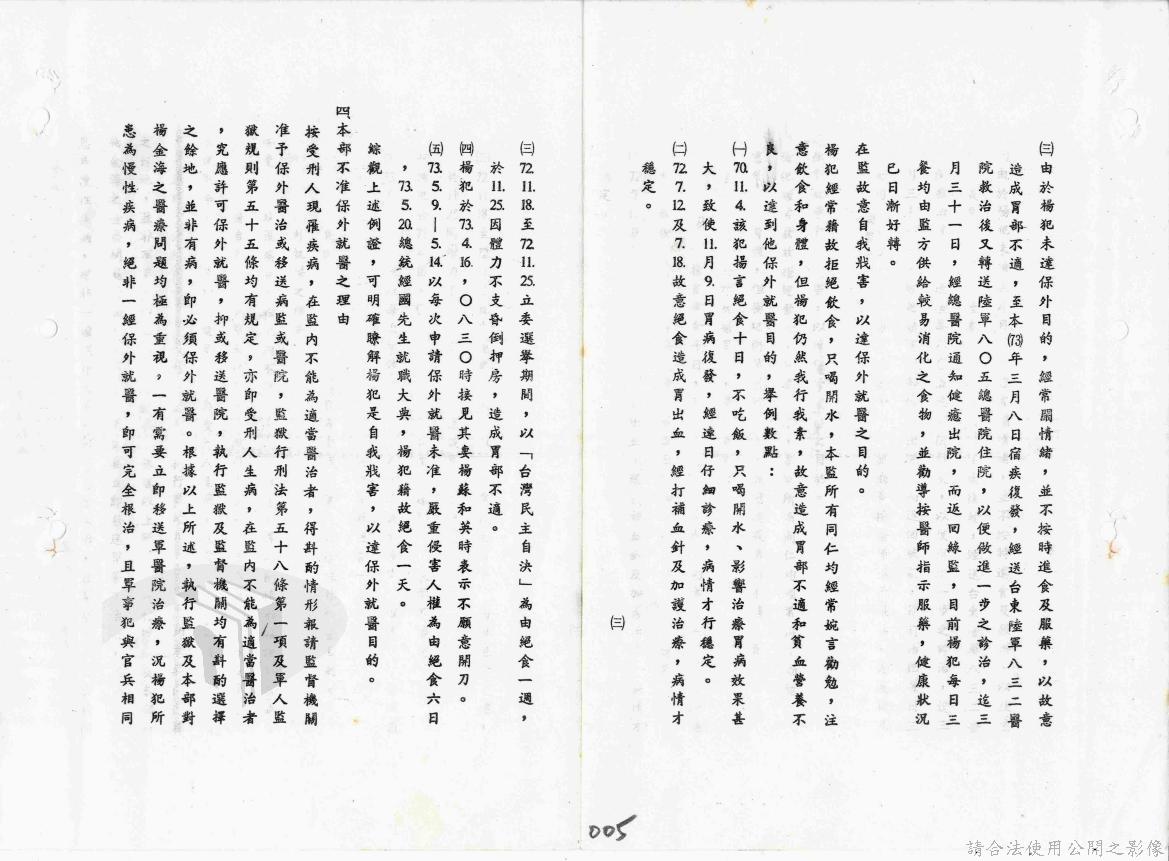 ㈢由於楊犯未達保外目的，經常鬧情緒，並不按時進食及服藥，以故意
造成胃部不適，至本(73)年三月八日宿疾復發，經送台東陸軍八三二醫
院救治後又轉送陸軍八〇五總醫院住院，以便做進一步之診治，迄三
月三十一日，經總醫院通知健癒出院，而返回綠監，目前楊犯每日三
餐均由監方供給較易消化之食物，並勸導按醫師指示服藥，健康狀況
已日漸好轉。
在監故意自我戕害，以達保外就醫之目的。
楊犯經常藉故拒絕飲食，只喝開水，本監所有同仁均經常婉言勸勉，注
意飲食和身體，但楊犯仍然我行我素，故意造成胃部不適和貧血營養不
良，以達到他保外就醫目的，舉例數點：
㈠70.11.4.該犯揚言絕食十日，不吃飯，只喝開水、影響治療胃病效果甚
大，致使11.月9.日胃病復發，經達日仔細診療，病情才行穩定。
㈡72.7.12.及7.18.故意絕食造成胃出血，經打補血針及加護治療，病情才
穩定。
㈢
㈢72.11.18.至72.11.25.立委選舉期間，以「台灣民主自決」為由絕食一週，
於11.25.因體力不支昏倒押房，造成胃部不適。
㈣楊犯於73.4.16.，〇八三〇時接見其妻楊蘇和英時表示不願意開刀。
㈤73.5.9.—5.14.以每次申請保外就醫未准，嚴重侵害人權為由絕食六日
，73.5.20.總統經國先生就職大典，楊犯藉故絕食一天。
綜觀上述例證，可明確瞭解楊犯是自我戕害，以達保外就醫目的。
四、本部不准保外就醫之理由
按受刑人現罹疾病，在監內不能為適當醫治者，得斟酌情形報請監督機關
准予保外醫治或移送病監或醫院，監獄行刑法第五十八條第一項及軍人監
獄規則第五十五條均有規定，亦即受刑人生病，在監內不能為適當醫治者
，究應許可保外就醫，抑或移送醫院，執行監獄及監督機關均有斟酌選擇
之餘地，並非有病，即必須保外就醫。根據以上所述，執行監獄及本部對
楊金海之醫療問題均極為重視，一有需要立即移送軍醫院治療，況楊犯所
患為慢性疾病，絕非一經保外就醫，即可完全根治，且軍事犯與官兵相同
005
請合法使用公開之影像